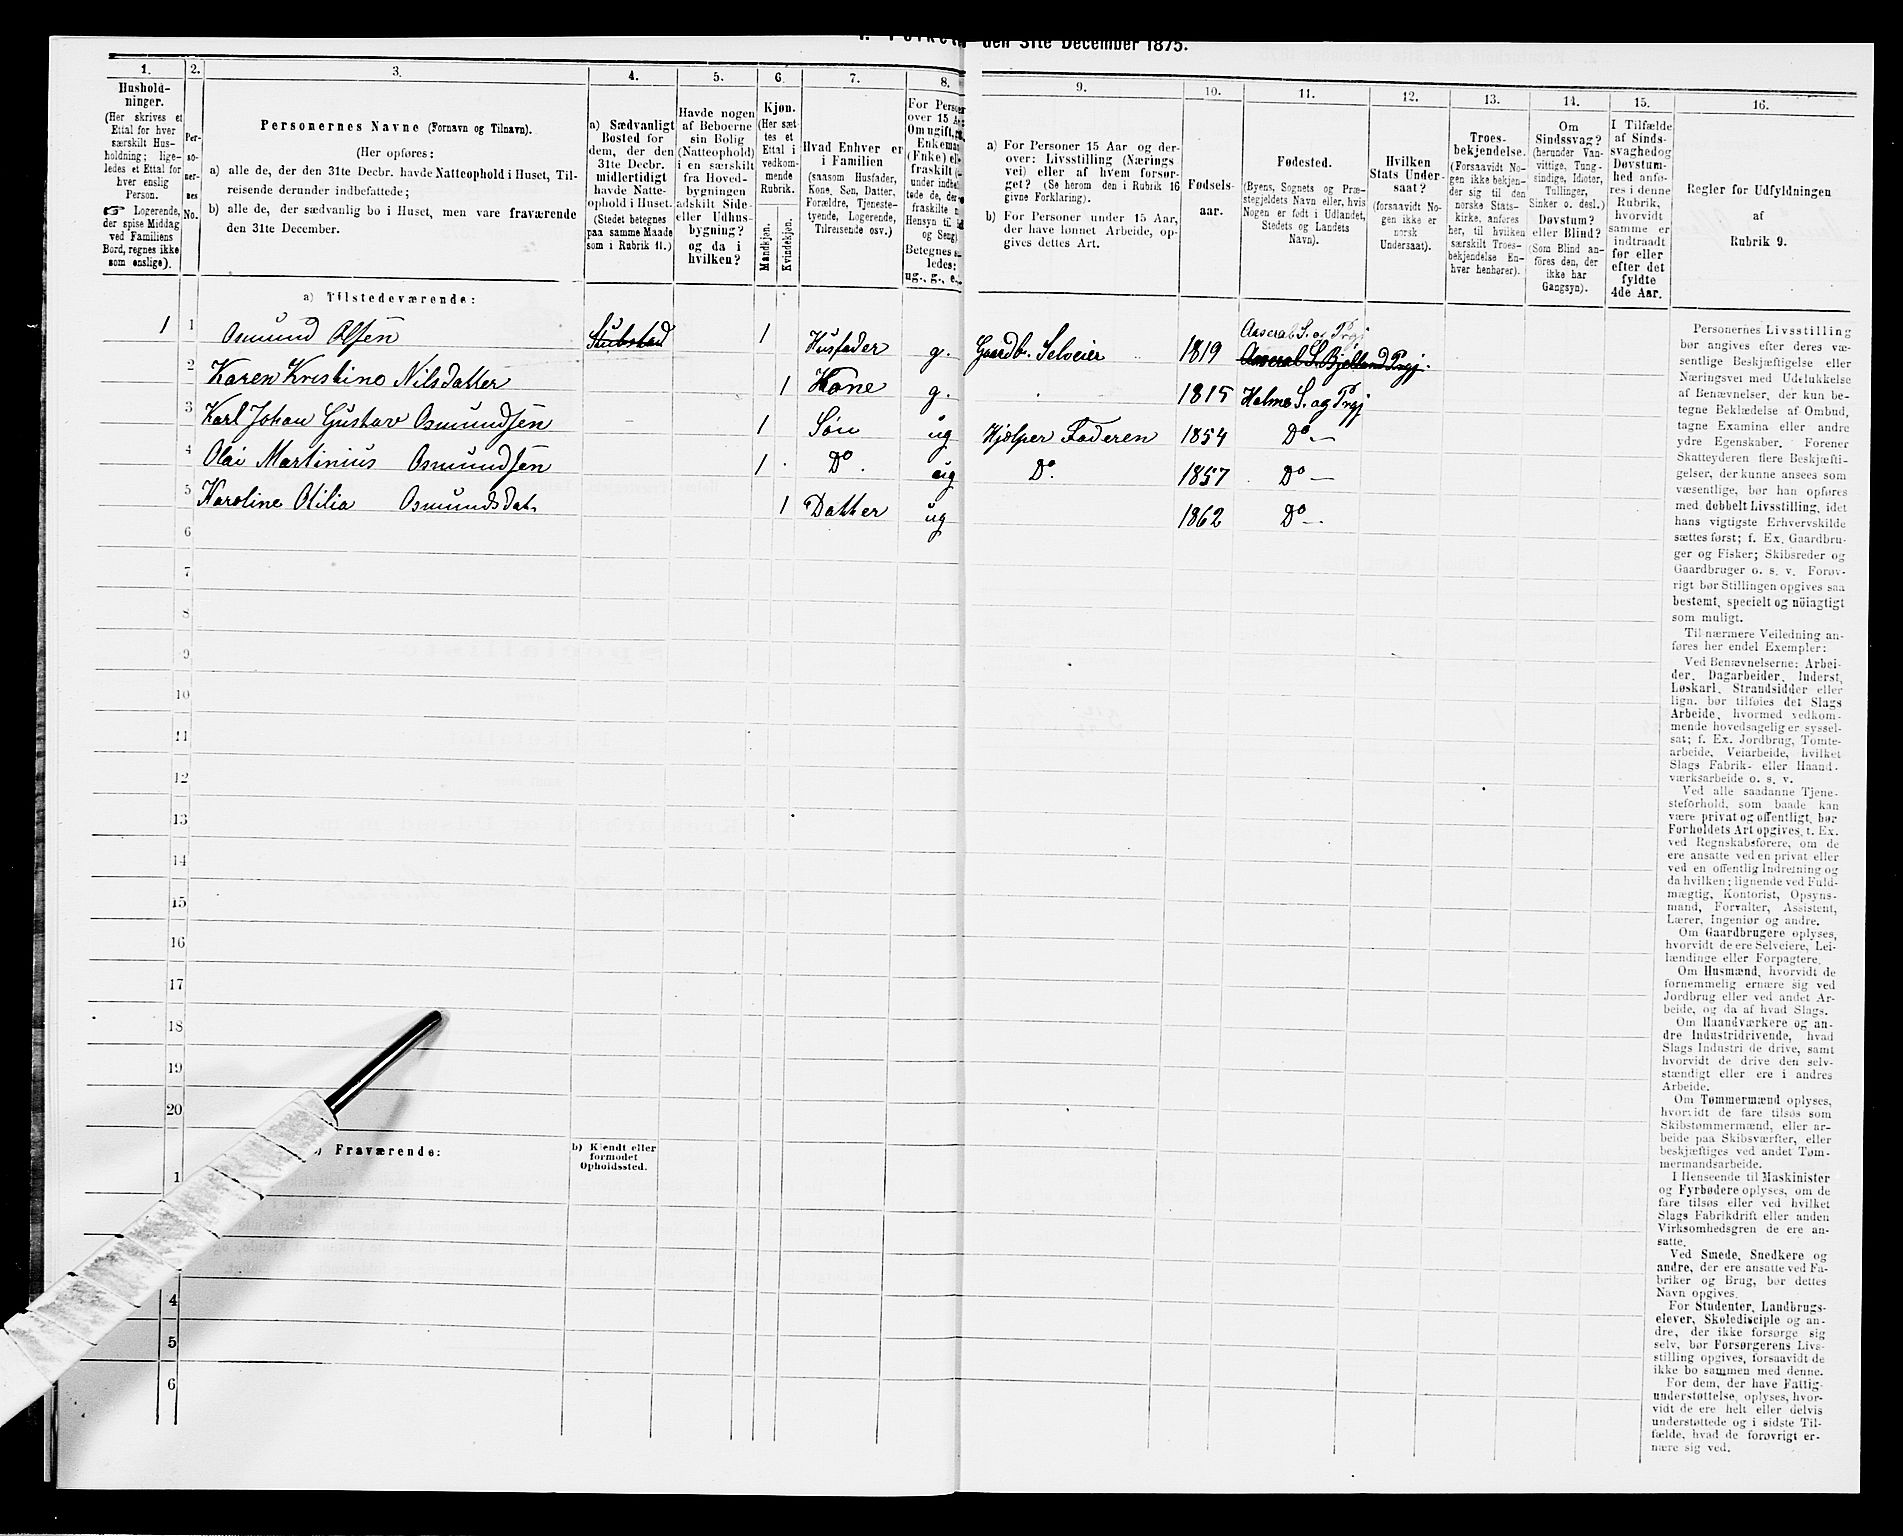 den 31te December 1875.
1.
Hushold-
ninger.
(Her skrives et
Ettal for hver
særskilt Hus-
holdning; lige-
ledes et Ettal for
hver enslig
Person.
☞ Logerende,
der spise Middag
ved Familiens
Bord, regnes ikke
som enslige).
2.
Per-
so-
ner-
nes
No.
3.
Personernes Navne (Fornavn og Tilnavn).
(Her opføres:
a) alle de, der den 31te Decbr. havde Natteophold i Huset, Til-
reisende derunder indbefattede;
b) alle de, der sædvanlig bo i Huset, men vare fraværende
den 31te December.
4.
a) Sædvanligt
Bosted for
dem, der den
31te Decbr.
midlertidigt
havde Natte-
ophold i Huset.
(Stedet betegnes
paa samme Maade
som i Rubrik 11.)
5.
Havde nogen
af Beboerne
sin Bolig
(Natteophold)
i en særskilt
fra Hoved-
bygningen
adskilt Side-
eller Udhus-
bygning?
og da i
hvilken?
6.
Kjøn.
(Her sæt
tes et
Ettal i
vedkom-
mende
Rubrik.
Mandkjøn.
Kvindekjøn.
7.
Hvad Enhver er
i Familien
(saasom Husfader,
Kone, Søn, Datter,
Forældre, Tjeneste-
tyende, Logerende,
Tilreisende osv.)
8.
For Person
over 15 Aar
Om ugift,
Enkemand
(Enke) ell
fraskilt
ug., g., e.,
9.
a) For Personer 15 Aar og der-
over: Livsstilling (Nærings
vei) eller af hvem forsør-
get? (Se herom den i Rubrik 16
givne Forklaring).
b) For Personer under 15 Aar,
der have lønnet Arbeide, op-
gives dettes Art.
10.
Fødsels-
aar.
11.
Fødested.
(Byens, Sognets og Præ-
stegjeldets Navn, eller, hvis
Nogen er født i Udlandet,
Stedets og Landets
Navn).
12.
Hvilken
Stats Under-
saat?
(forsaavidt No-
gen ikke er
norsk
Undersaat).
13.
Troes-
bekjendelse.
(Forsaavidt No-
gen ikke bekjen-
der sig til den
norske Stats-
kirke, anføres
her, til hvilken
særskilt Troes-
bekjendelse En-
hver henhører).
14.
Om
Sindssvag?
(herunder Van-
vittige, Tung-
sindige, Idioter,
Tullinger,
Sinker o. desl.)
Døvstum?
eller Blind?
(Som Blind an-
føres den, der
ikke har
Gangsyn).
15.
I Tilfælde
af Sinds-
svaghed og
Døvstum-
hed anfø-
res i denne
Rubrik,
hvorvidt
samme er
indtraadt
før eller
efter det
fyldte
4de Aar.
16.
Regler for Udfyldningen
af
Rubrik 9.
a) Tilstedeværende:
1 1 Osmund Olsen 1 Husfader g. Gaardb. Selveier 1819 Aaseral S. og Prgj
Aaseral S. Bjelland Prgj.
2 Karen Kristine Nilsdatter 1 Kone g. 1815 Holme S. og Prgj
3 Karl Johan Gustav Osmundsen 1 Søn ug Hjælper Faderen 1854 Do —
4 Olai Martinius Osmundsen 1 Do ug Do. 1857 Do —
5 Karoline Otilia Osmundsdat. 1 Datter ug 1862 Do —
6
7
8
9
10
11
12
13
14
15
16
17
18
19
20
Fraværende:
b) Kjendt eller
formodet
Opholdssted.
1
4
5
6
Personernes Livsstilling
bør angives efter deres væ-
sentlige Beskjæftigelse eller
Næringsvei med Udelukkelse
af Benævnelser, der kun be-
tegne Beklædelse af Ombud,
tagne Examina eller andre
ydre Egenskaber. Forener
Skatteyderen flere Beskjæfti-
gelser, der kunne ansees som
væsentlige, bør han opføres
med dobbelt Livsstilling, idet
hans vigtigste Erhvervskilde
sættes først; f. Ex. Gaardbru-
ger og Fisker; Skibsreder og
Gaardbruger o. s. v. Forøv-
rigt bør Stillingen opgives saa
bestemt, specielt og nöiagtigt
som muligt.
Til nærmere Veiledning an-
føres her endel Exempler:
Ved Benævnelserne: Arbei-
der, Dagarbeider, Inderst,
Løskarl, Strandsidder eller
lign. bør tilføies det Slags
Arbeide, hvormed vedkom-
mende hovedsagelig er syssel-
sat; f. Ex. Jordbrug, Tomte-
arbeide, Veiarbeide, hvilket
Slags Fabrik- eller Haand-
værksarbeide o. s. v.
Ved alle saadanne Tjene-
steforhold, som baade kan
være privat og offentligt, bør
Forholdets Art opgives, t. Ex.
ved Regnskabsførere, om de
ere ansatte ved en privat eller
ved en offentlig Indretning og
da hvilken; lignende ved Fuld-
mægtig, Kontorist, Opsyns-
mand, Forvalter, Assistent,
Lærer, Ingeniør og andre.
Om Gaardbrugere oplyses,
hvorvidt de ere Selveiere, Lei-
lændinge eller Forpagtere.
Om Husmænd, hvorvidt de
fornemmelig ernære sig ved
Jordbrug eller ved andet Ar-
beide, og da af hvad Slags.
Om Haandværkere og an-
dre Industridrivende, hvad
Slags Industri de drive, samt
hvorvidt de drive den selv-
stændigt eller ere i andres
Arbeide.
Om Tømmermænd oplyses,
hvorvidt de fare tilsøs som
Skibstømmermænd, eller ar-
beide paa Skibsværfter, eller
beskjæftiges ved andet Tøm-
mermandsarbeide.
I Henseende til Maskinister
og Fyrbødere oplyses, om de
fare tilsøs eller ved hvilket
Slags Fabrikdrift eller anden
Virksomhedsgren de ere an-
satte.
Ved Smede, Snedkere og
andre, der ere ansatte ved Fa-
briker og Brug, bør dettes
Navn opgives.
For Studenter, Landbrugs-
elever, Skoledisciple og an-
dre, der ikke forsørge sig
selv, bør Forsørgerens Livs-
stilling opgives, forsaavidt de
ikke bo sammen med denne.
For dem, der have Fattig-
understøttelse, oplyses, hvor-
vidt de ere helt eller delvis
understøttede og i sidste Til-
fælde, hvad de forøvrigt er-
nære sig ved.